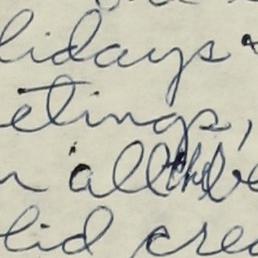 lidays
etings,
n all the be
lid crea